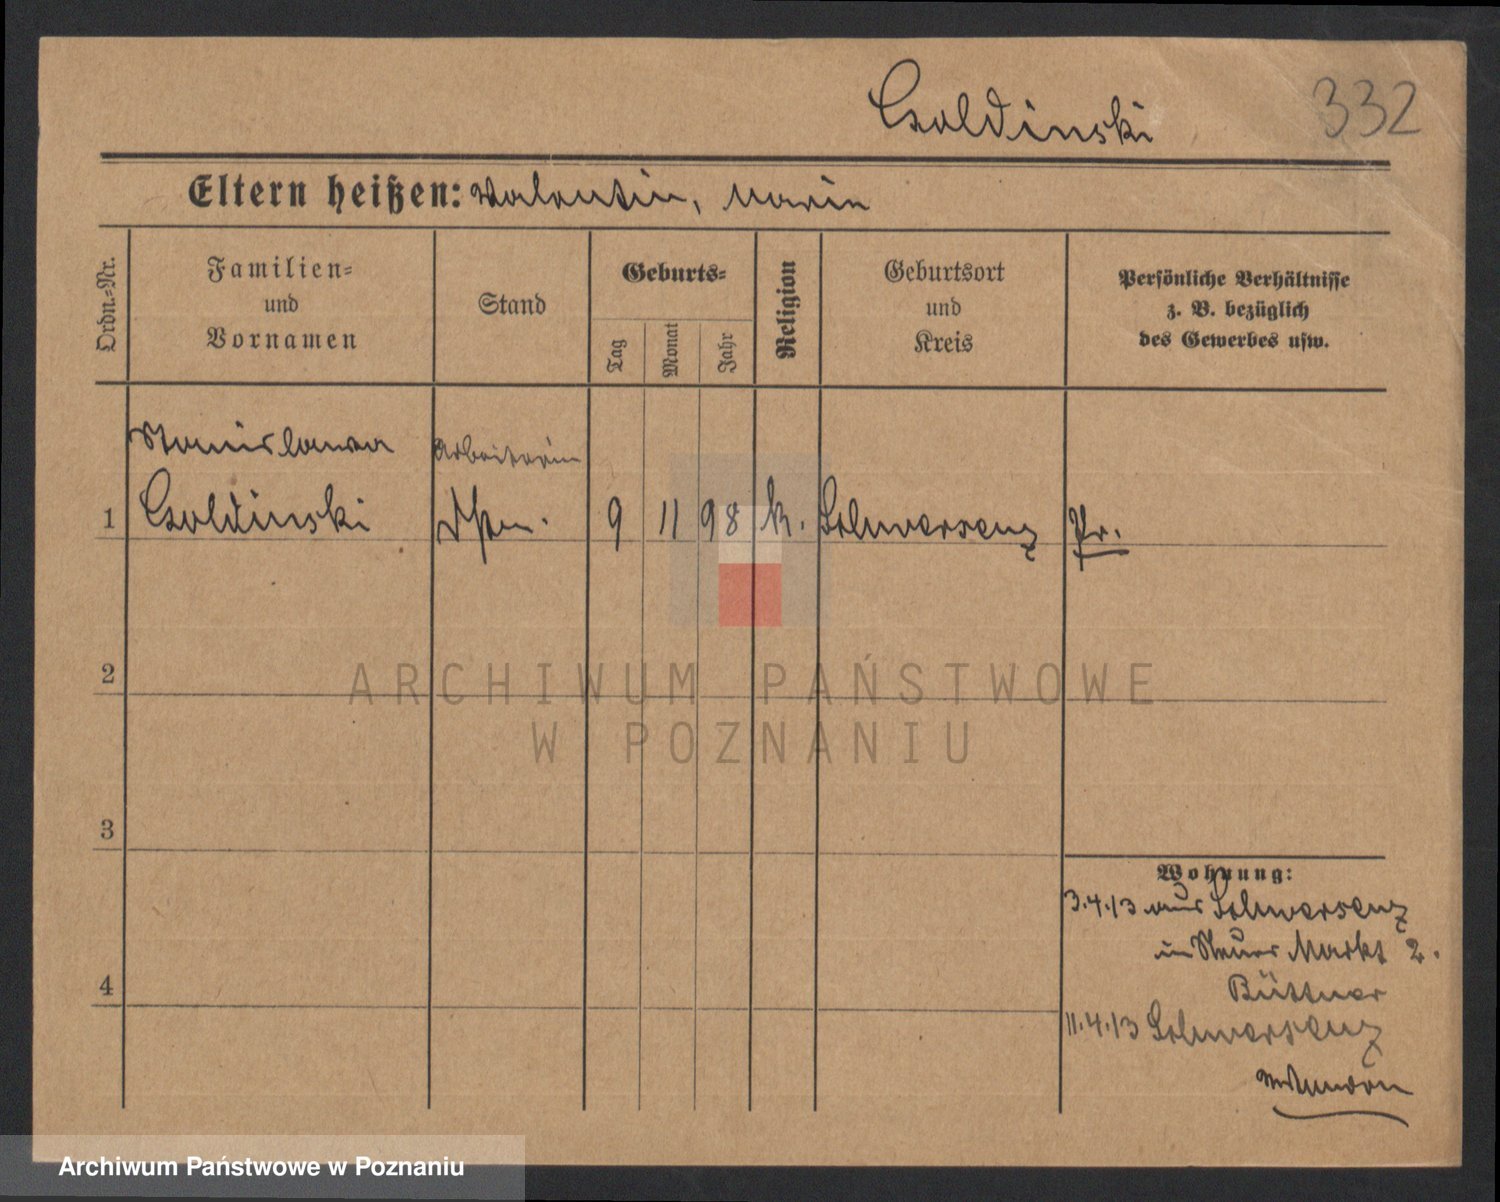 Goldinski 332
Eltern heißen: Valentin, Marie
Ordn.-Nr.
Familien-
und
Vornamen
Stand
Geburts-
Tag
Monat
Jahr
Religion
Geburtsort
und
Kreis
Persönliche Verhältnisse
z. B. bezüglich
des Gewerbes usw.
Stanislawa Arbeiterin
1 Goldinski 9 11 98 k. Schwersenz Pr.
2
ARCHIWUM PAŃSTWOWE
W POZNANIU
3
4
Wohnung:
3.4.13 aus Schwersenz
in Neuer Markt 2.
Büttner
11.4.13 Schwersenz
Archiwum Państwowe w Poznaniu